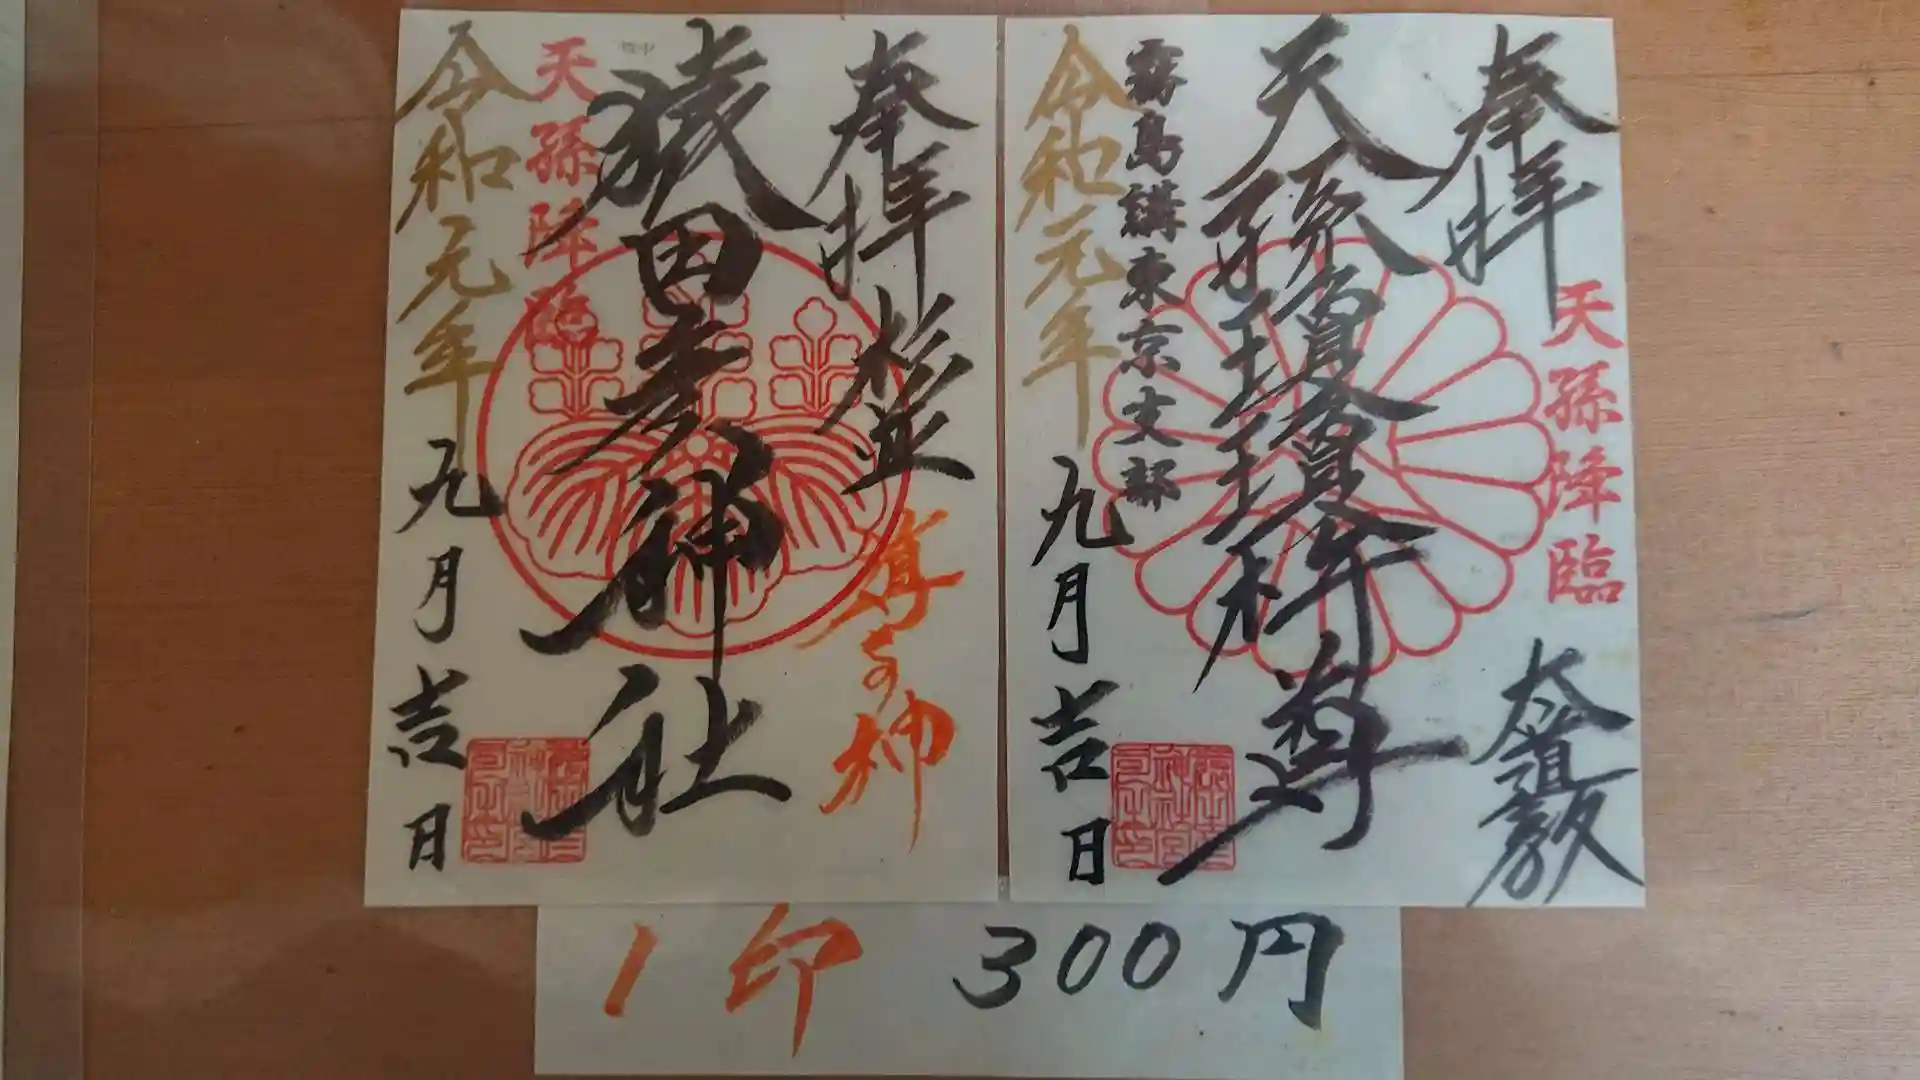 奉拝
天孫降臨
大道教
天孫瓊瓊杵尊
霧島講東京支部
令和元年九月吉日
奉拝 杉並
猿田彦神社
天孫降臨
令和元年九月吉日
1印 300円